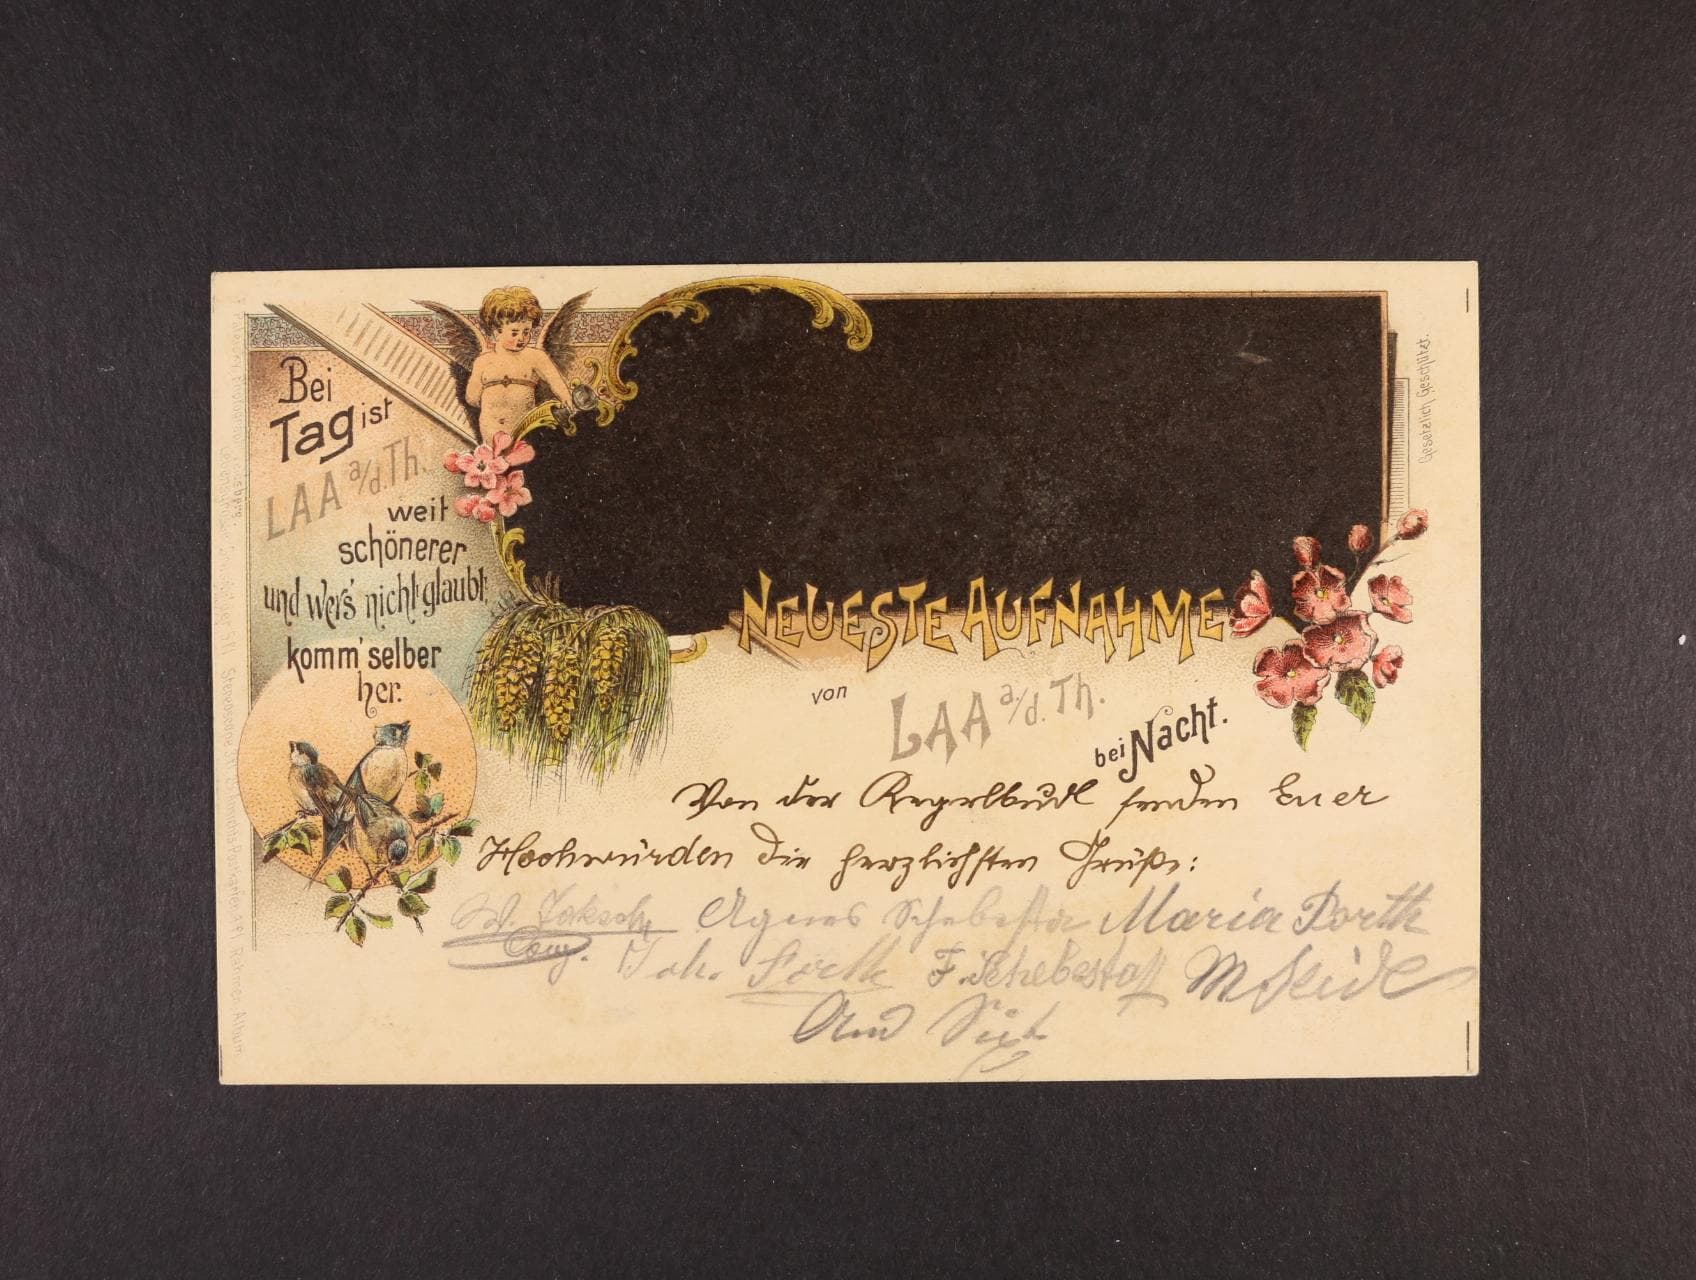 Bei
Tag ist
LAA a/d. Th.
weit
schönerer
und wer's nicht glaubt,
komm' selber
her.
NEUESTE AUFNAHME
von
LAA a/d. Th.
bei Nacht.
Gesetzlich Geschützt.
Von der Kegelbudl senden Euer
Hochwürden die herzlichsten Grüße:
Agnes Schebesta Maria Porth
Joh. Porth F. Schebesta M Seidl